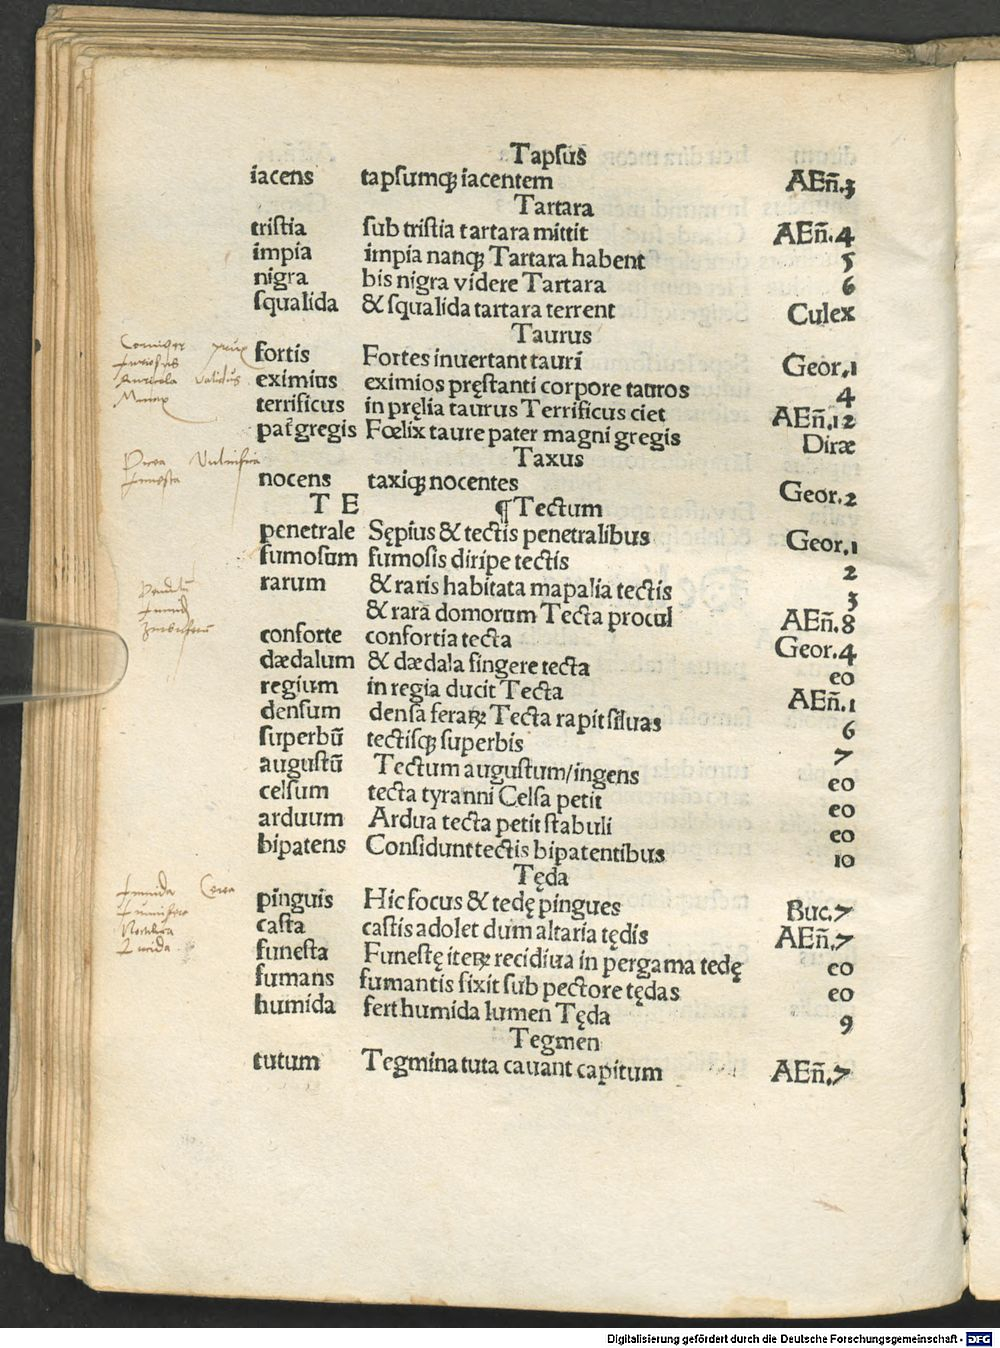 Tapsus
iacens tapsumq; iacentem AEñ.3
Tartara
tristia sub tristia tartara mittit AEñ.4
impia impia nanq; Tartara habent 5
nigra bis nigra videre Tartara 6
squalida & squalida tartara terrent Culex
Taurus
fortis Fortes inuertant tauri Geor.1
eximius eximios pręstanti corpore tauros 4
terrificus in pręlia taurus Terrificus ciet AEñ.12
pat̃ gregis Fœlix taure pater magni gregis Diræ
Taxus
nocens taxiq; nocentes Geor.2
T E ¶Tectum
penetrale Sępius & tectis penetralibus Geor.1
fumosum fumosis diripe tectis 2
rarum & raris habitata mapalia tectis 3
& rara domorum Tecta procul AEñ.8
conforte confortia tecta Geor.4
dædalum & dædala fingere tecta eo
regium in regia ducit Tecta AEñ.1
densum densa feraꝝ Tecta rapit siluas 6
superbũ tectisq; superbis 7
augustũ Tectum augustum/ingens eo
celsum tecta tyranni Celsa petit eo
arduum Ardua tecta petit stabuli eo
bipatens Considunt tectis bipatentibus 10
Tęda
pinguis Hic focus & tedę pingues Buc.7
casta castis adolet dum altaria tędis AEñ.7
funesta Funestę iteꝝ recidiua in pergama tedę eo
fumans fumantis fixit sub pectore tędas eo
humida fert humida lumen Tęda 9
Tegmen
tutum Tegmina tuta cauant capitum AEñ.7
Corniger
validus
Minax
Vulnifica
funesta
Lurida
Digitalisierung gefördert durch die Deutsche Forschungsgemeinschaft - DFG